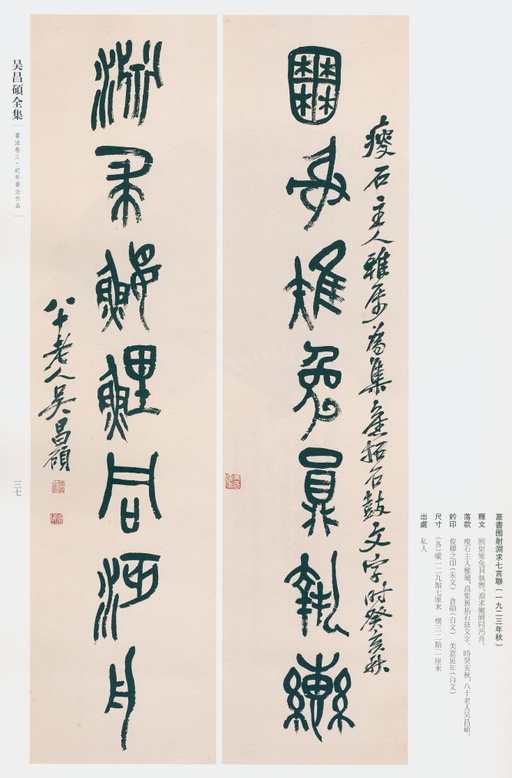 瘦石主人雅屬為集舊拓石鼓文字時癸亥秋
囿射雉兔員執轡
淵求鰋鯉同沔舟
八十老人吳昌碩
篆書囿射淵求七言聯(一九二三年秋)
釋文 囿射雉兔員執轡,淵求鰋鯉同沔舟。
落款 瘦石主人雅屬,爲集舊拓石鼓文字,時癸亥秋,八十老人吴昌碩。
鈐印 俊卿之印(朱文) 倉碩(白文) 美意延年(白文)
尺寸 (各)縱一二九點七厘米 橫三二點二厘米
出處 私人
吴昌碩全集
書法卷三·紀年書法作品
三七